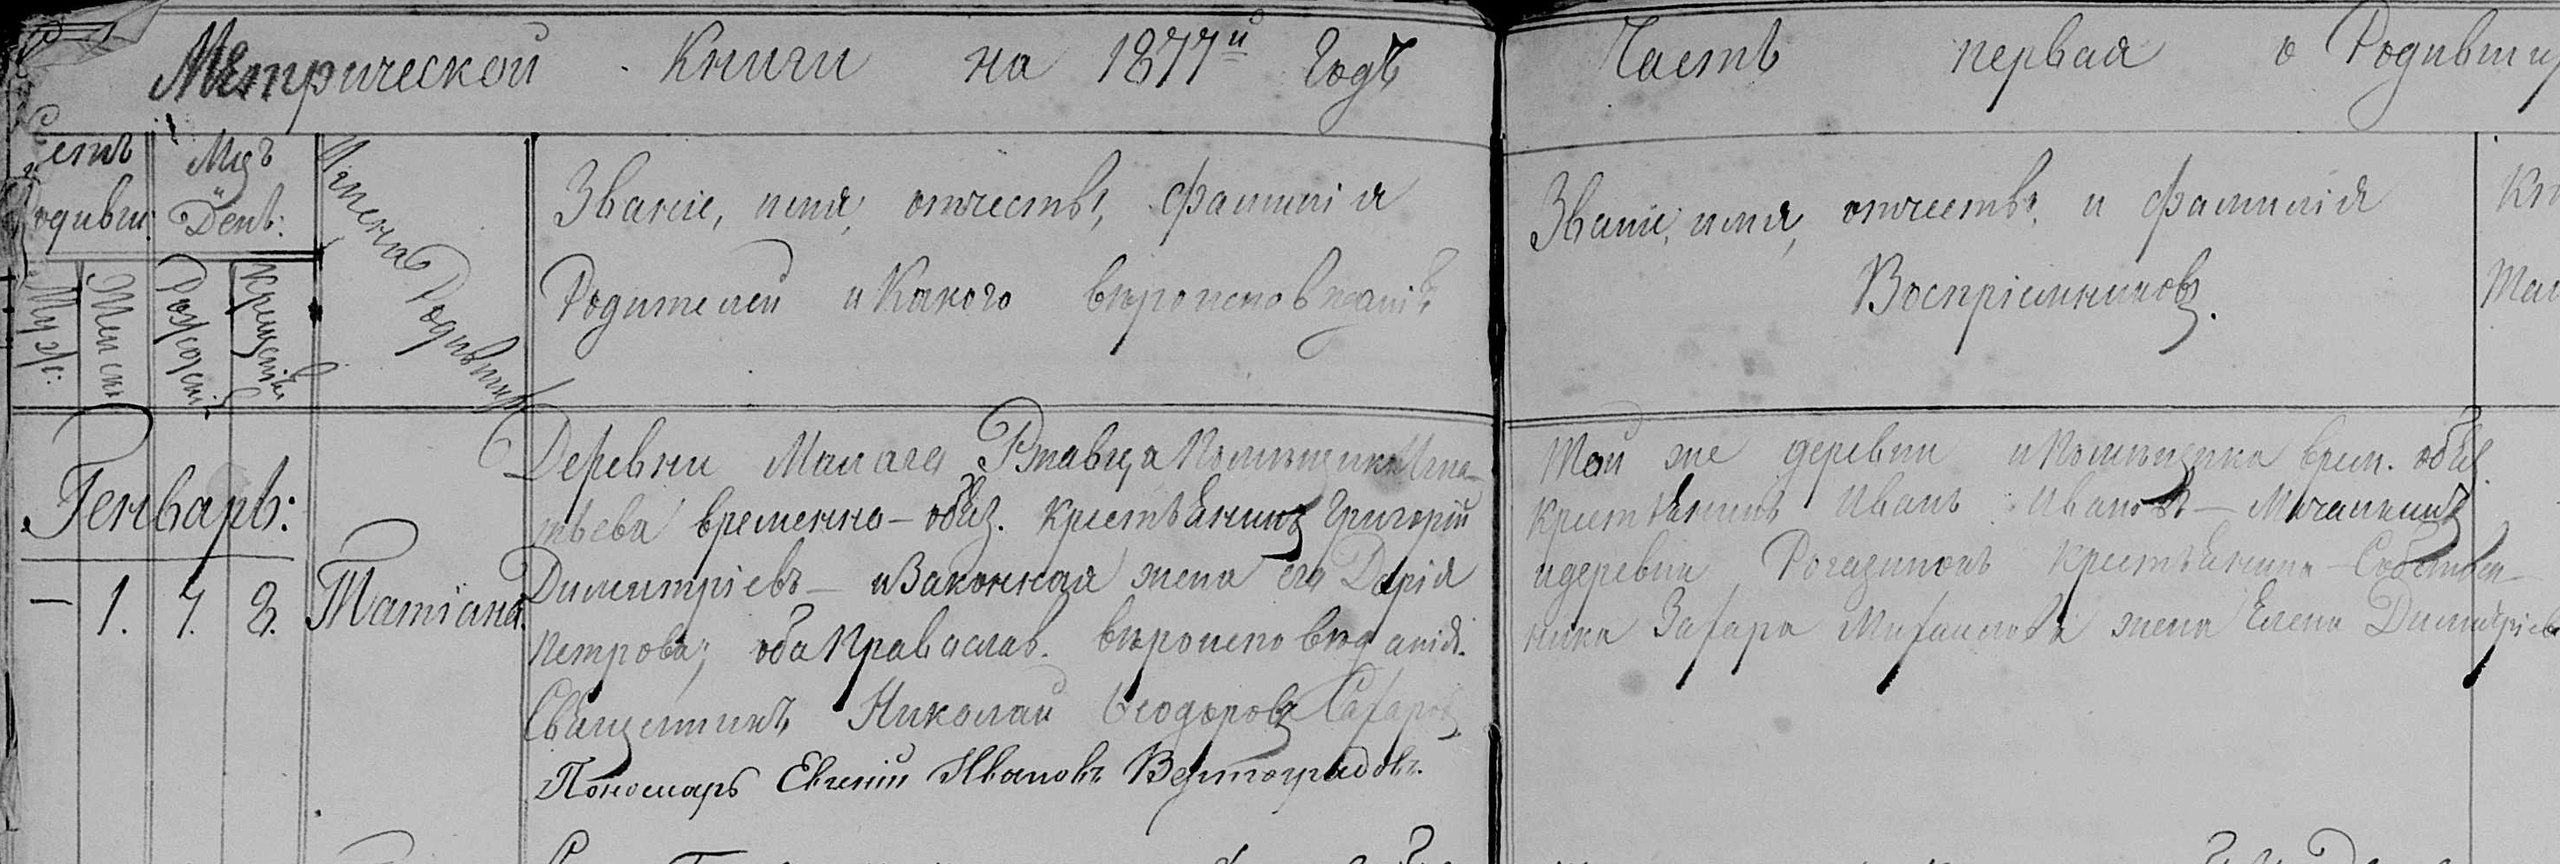 Метрической Книги на 1877й Годъ
Часть первая о Родивши
Мцъ
Родивш:
День:
Имена Родивших
Звание, имя, отчество, фамилия
Родителей и Какого вероисповедания
Муж:
Женск
Рожден:
Крещения
Звание, имя, отчество и фамилия
Восприемниковъ.
Генварь:
— 1. 7. 8. Татiана.
Деревни Малага Ртавца Помещика Игна-
тьева временно-обяз. крестьянинъ Григорий
Димитрiевъ — и Законная жена его Дарiя
Петрова; оба Православ. вероисповедания.
Священникъ Николай Ѳеодоровъ Сахаровъ
Пономарь Евгенiй Ивановъ Вертоградовъ.
Той же деревни и Помещика врем. обяз.
крестьянинъ Иванъ Ивановъ —
и деревни крестьянина — Собствен-
ника Захара Михаилова жена Елена Димитрiева